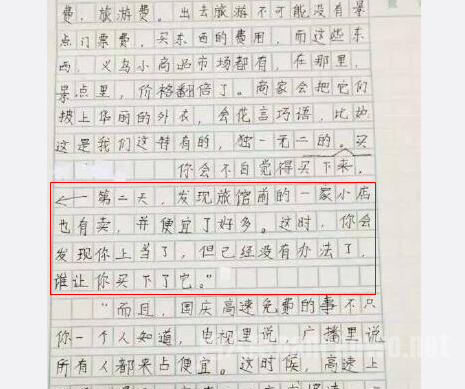 费，旅游费。出去旅游不可能没有景
点门票费，买东西的费用，而这些东
西，义乌小商品市场都有，在那里，
景点里，价格翻倍了。商家会把它们
披上华丽的外衣，会花言巧语，比如
这是我们这特有的，独一无二的。买
你会不自觉得买下来，
第二天，发现旅馆前的一家小店
也有卖，并便宜了好多。这时，你会
发现你上当了，但已经没有办法了，
谁让你买下了它。"
"而且，国庆高速免费的事不只
你一个人知道，电视里说，广播里说
所有人都来占便宜。这时候，高速上